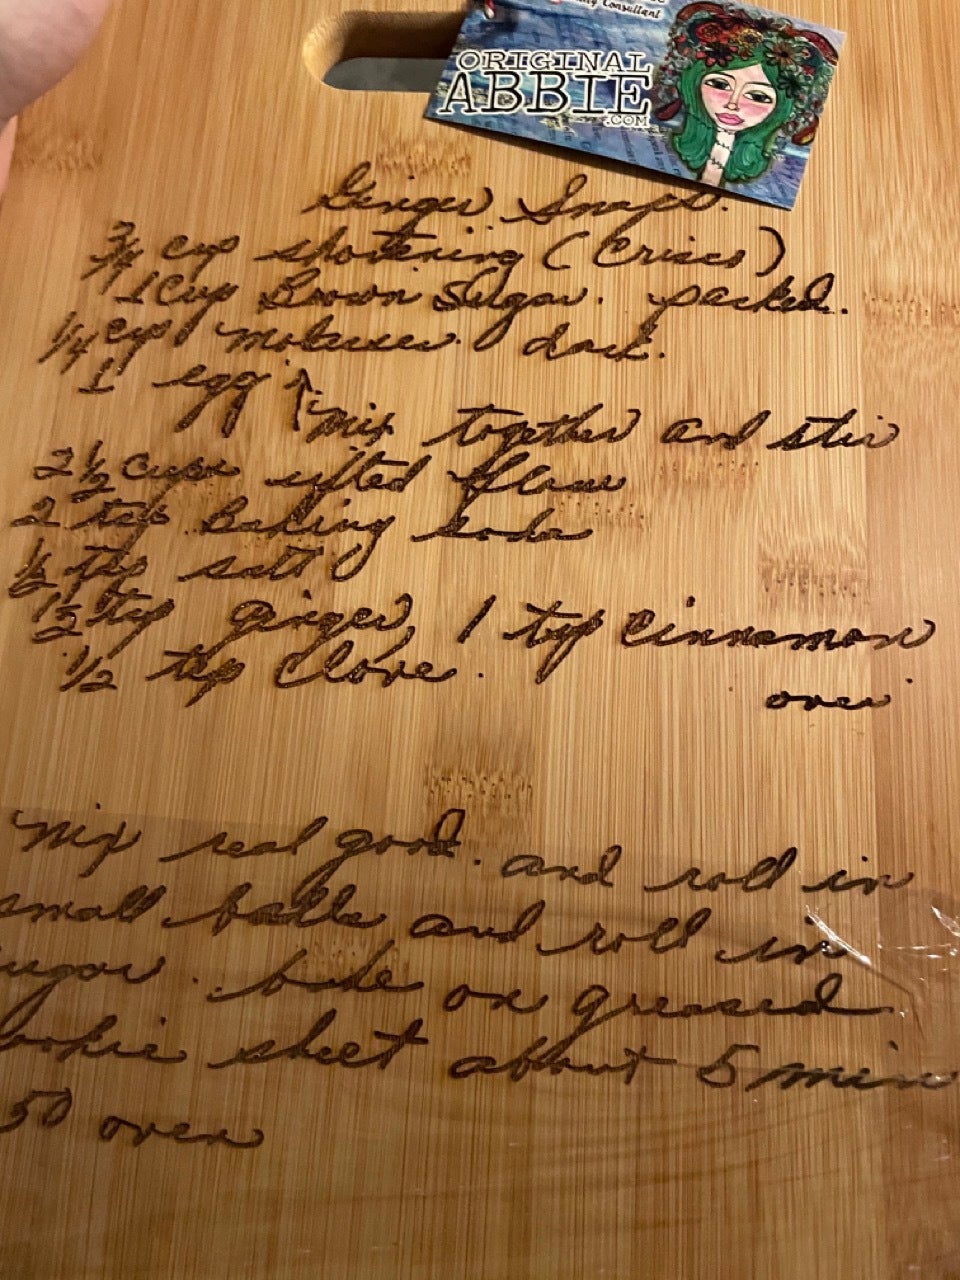 Consultant
ORIGINAL
ABBIE
.COM
Ginger Snaps.
3/4 cup shortening (Crisco)
1 Cup Brown Sugar. packed.
1/4 cup molasses. dark.
1 egg ↑
mix together and stir
2 1/2 cups sifted flour
2 tsp Baking soda
1/2 tsp salt
1 1/2 tsp ginger, 1 tsp cinnamon
1/2 tsp Clove.
over
mix real good. and roll in
small balls and roll in
ugar. bake on greased
ookie sheet about 5 min
50 oven